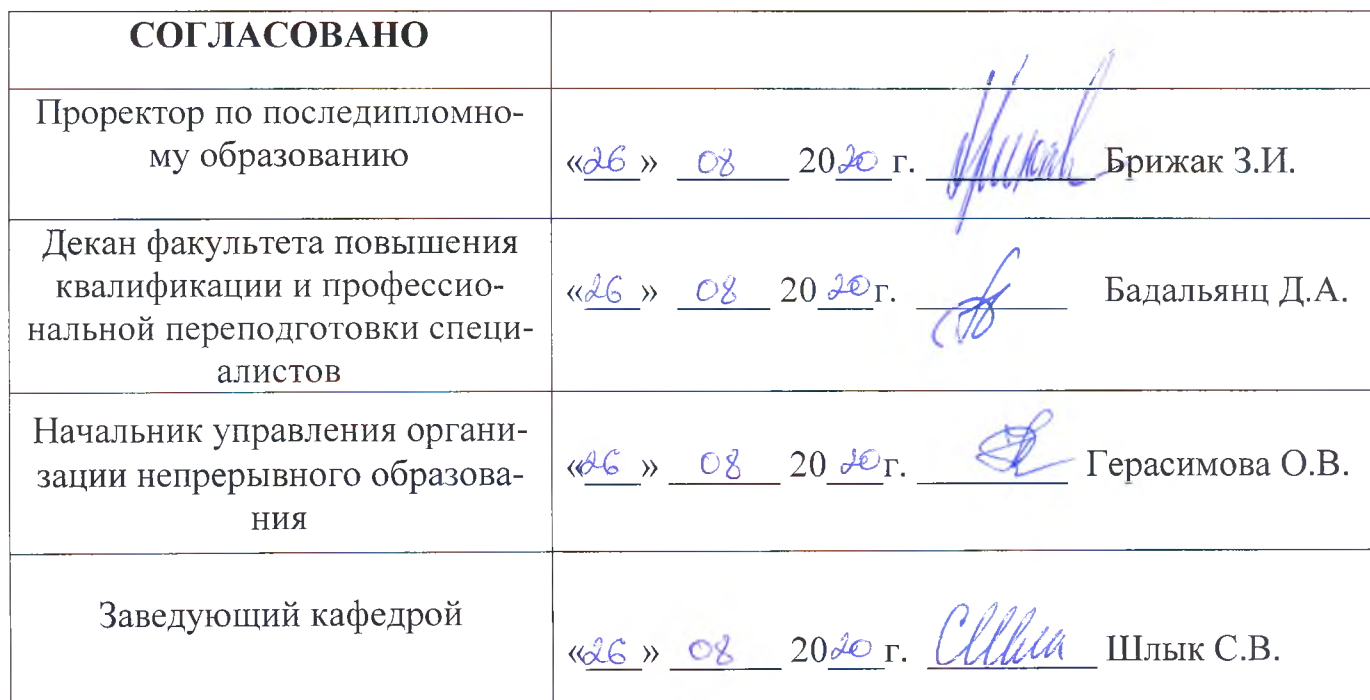 СОГЛАСОВАНО
Проректор по последипломно-
му образованию
«26» 08 2020 г. Брижак З.И.
Декан факультета повышения
квалификации и профессио-
нальной переподготовки специ-
алистов
«26» 08 2020г. Бадальянц Д.А.
Начальник управления органи-
зации непрерывного образова-
ния
«26» 08 2020г. Герасимова О.В.
Заведующий кафедрой
«26» 08 2020 г. Шлык С.В.